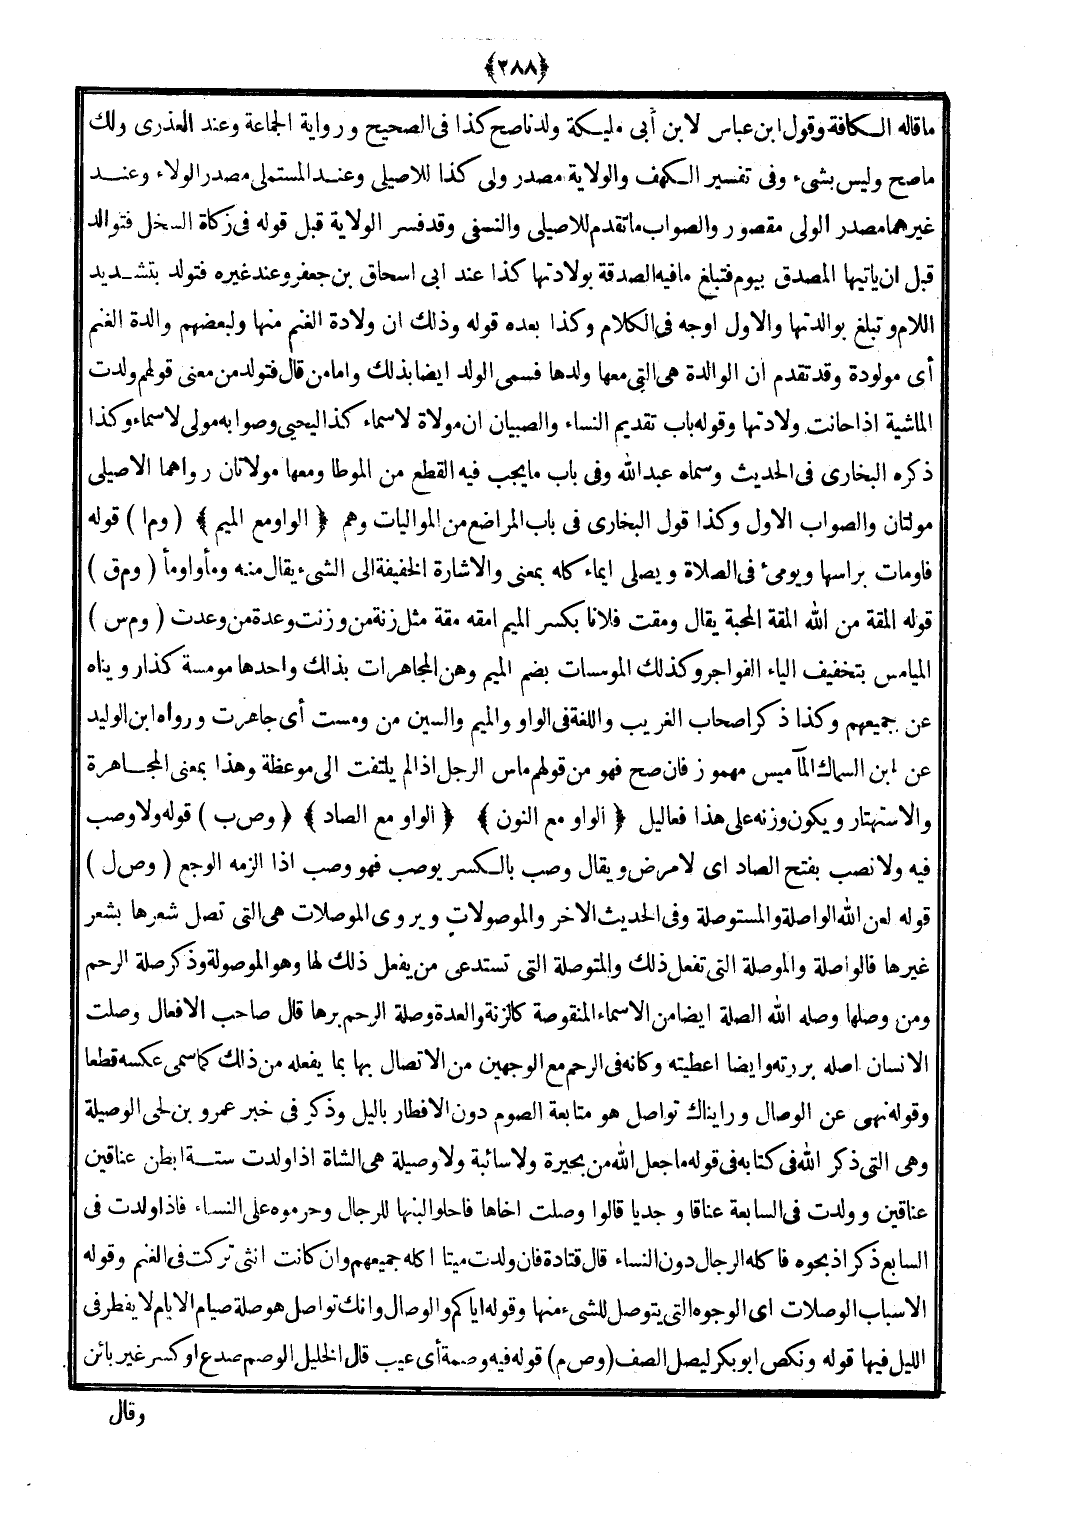 ﴿٢٨٨﴾
ماقاله الكافة وقول ابن عباس لابن أبى مليكة ولد ناصح كذا فى الصحيح ورواية الجماعة وعند العذرى ولك
ماصح وليس بشىء وفى تفسير الكهف والولاية مصدر ولى كذا للاصيلى وعند المستملى مصدر الولاء وعند
غيرهما مصدر الولى مقصور والصواب ماتقدم للاصيلى والنسفى وقد فسر الولاية قبل قوله فى زكاة السخل فتوالد
قبل ان ياتيها المصدق بيوم فتبلغ مافيه الصدقة بولادتها كذا عند ابى اسحاق بن جعفر وعند غيره فتولد بتشديد
اللام وتبلغ بوالدتها والاول اوجه فى الكلام وكذا بعده قوله وذلك ان ولادة الغنم منها ولبعضهم والدة الغنم
أى مولودة وقد تقدم ان الوالدة هى التى معها ولدها فسمى الولد ايضا بذلك وامامن قال فتولد من معنى قولهم ولدت
الماشية اذا حانت ولادتها وقوله باب تقديم النساء والصبيان ان مولاة لاسماء كذا ليحيى وصوابه مولى لاسماء وكذا
ذكره البخارى فى الحديث وسماه عبد الله وفى باب مايجب فيه القطع من الموطا ومعها مولاتان رواهما الاصيلى
مولتان والصواب الاول وكذا قول البخارى فى باب المراضع من المواليات وهم ﴿ الواو مع الميم ﴾ ( وم ا ) قوله
فاومات براسها ويومىء فى الصلاة ويصلى ايماء كله بمعنى والاشارة الخفيفة الى الشىء يقال منه ومأ واومأ ( وم ق )
قوله المقة من الله المقة المحبة يقال ومقت فلانا بكسر الميم امقه مقة مثل زنة من وزنت وعدة من وعدت ( وم س )
الميامس بتخفيف الياء الفواجر وكذلك الموسات بضم الميم وهن المجاهرات بذالك واحدها مومسة كذا رويناه
عن جميعهم وكذا ذكر اصحاب الغريب واللغة فى الواو والميم والسين من ومست أى جاهرت ورواه ابن الوليد
عن ابن السماك المآميس مهموز فان صح فهو من قولهم ماس الرجل اذا لم يلتفت الى موعظة وهذا بمعنى المجاهرة
والاستهتار ويكون وزنه على هذا فعاليل ﴿ الواو مع النون ﴾ ﴿ الواو مع الصاد ﴾ ( وص ب ) قوله ولا وصب
فيه ولا نصب بفتح الصاد اى لا مرض ويقال وصب بالكسر يوصب فهو وصب اذا الزمه الوجع ( وص ل )
قوله لعن الله الواصلة والمستوصلة وفى الحديث الاخر والموصولات ويروى الموصلات هى التى تصل شعرها بشعر
غيرها فالواصلة والموصلة التى تفعل ذلك والمتوصلة التى تستدعى من يفعل ذلك لها وهو الموصولة وذكر صلة الرحم
ومن وصلها وصله الله الصلة ايضا من الاسماء المنقوصة كالزنة والعدة وصلة الرحم برها قال صاحب الافعال وصلت
الانسان اصله بررته وايضا اعطيته وكانه فى الرحم مع الوجهين من الاتصال بها بما يفعله من ذلك كما سمى عكسه قطعا
وقوله نهى عن الوصال ورايناك تواصل هو متابعة الصوم دون الافطار باليل وذكر فى خبر عمرو بن لحى الوصيلة
وهى التى ذكر الله فى كتابه فى قوله ماجعل الله من بحيرة ولا سائبة ولا وصيلة هى الشاة اذا ولدت ستة ابطن عناقين
عناقين وولدت فى السابعة عناقا وجديا قالوا وصلت اخاها فاحلوا لبنها للرجال وحرموه على النساء فاذا ولدت فى
السابع ذكرا ذبحوه فاكله الرجال دون النساء قال قتادة فان ولدت ميتا اكله جميعهم وان كانت انثى تركت فى الغنم وقوله
الاسباب الوصلات اى الوجوه التى يتوصل للشىء منها وقوله اياكم والوصال وانك تواصل هو صلة صيام الايام لايفطر فى
الليل فيها قوله ونكص ابوبكر ليصل الصف ( وص م ) قوله فيه وصمة أى عيب قال الخليل الوصم صدع او كسر غير بائن
وقال